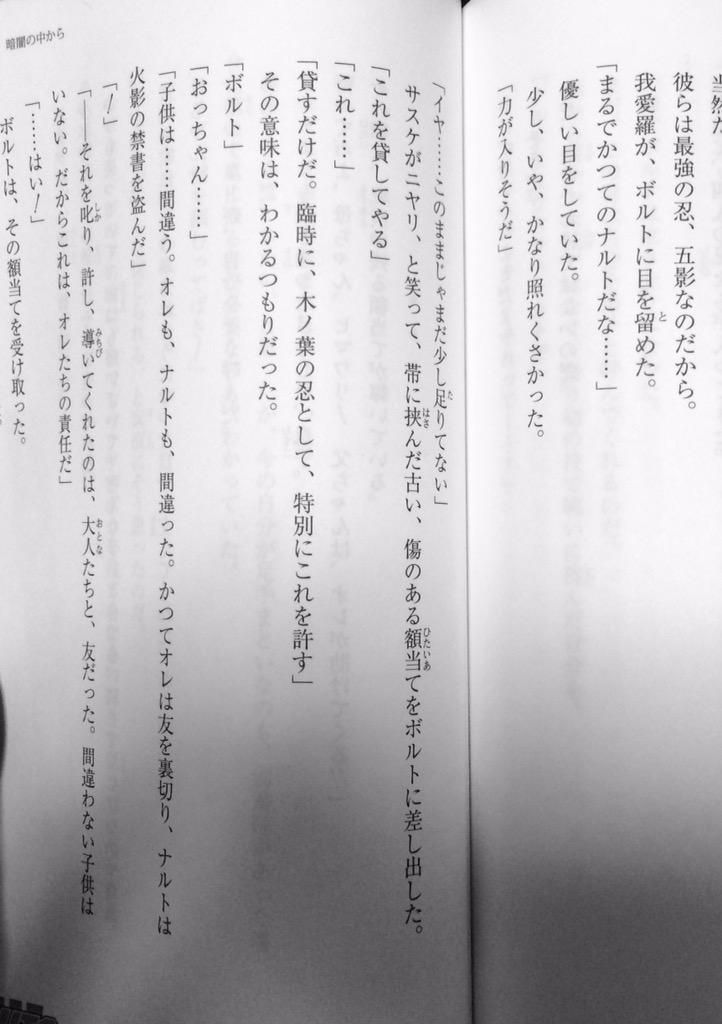 当然だ
彼らは最強の忍、五影なのだから。
我愛羅が、ボルトに目を留めた。
「まるでかつてのナルトだな……」
優しい目をしていた。
少し、いや、かなり照れくさかった。
「力が入りそうだ」
「イヤ……このままじゃまだ少し足りてない」
サスケがニヤリ、と笑って、帯に挟んだ古い、傷のある額当てをボルトに差し出した。
「これを貸してやる」
「これ……」
「貸すだけだ。臨時に、木ノ葉の忍として、特別にこれを許す」
その意味は、わかるつもりだった。
「ボルト」
「おっちゃん……」
「子供は……間違う。オレも、ナルトも、間違った。かつてオレは友を裏切り、ナルトは
火影の禁書を盗んだ」
「！」
「――それを叱り、許し、導いてくれたのは、大人たちと、友だった。間違わない子供は
いない。だからこれは、オレたちの責任だ」
「……はい！」
ボルトは、その額当てを受け取った。
暗闇の中から